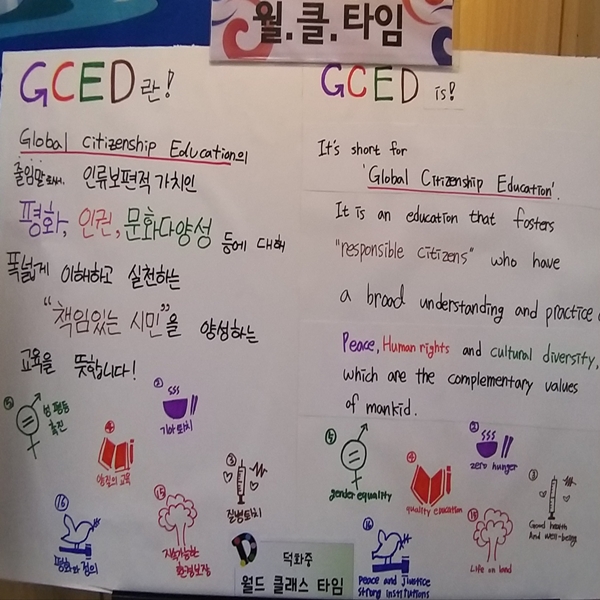 월.클.타임
GCED 란!
Global Citizenship Education의
줄임말로서, 인류보편적 가치인
평화, 인권, 문화다양성 등에 대해
폭넓게 이해하고 실천하는
"책임있는 시민"을 양성하는
교육을 뜻합니다!
⑤ 성 평등 촉진
④ 양질의 교육
② 기아 퇴치
③ 질병퇴치
⑯ 평화와 정의
⑮ 지속가능한
환경보장
GCED is!
It's short for
'Global Citizenship Education'.
It is an education that fosters
"responsible citizens" who have
a broad understanding and practice
Peace, Human rights and cultural diversity,
which are the complementary values
of mankid.
⑤ gender equality
④ quality education
② zero hunger
③ Good health
And well-being
⑯ Peace and Justice
Strong institutions
⑮ Life on land
덕화중
월드 클래스 타임